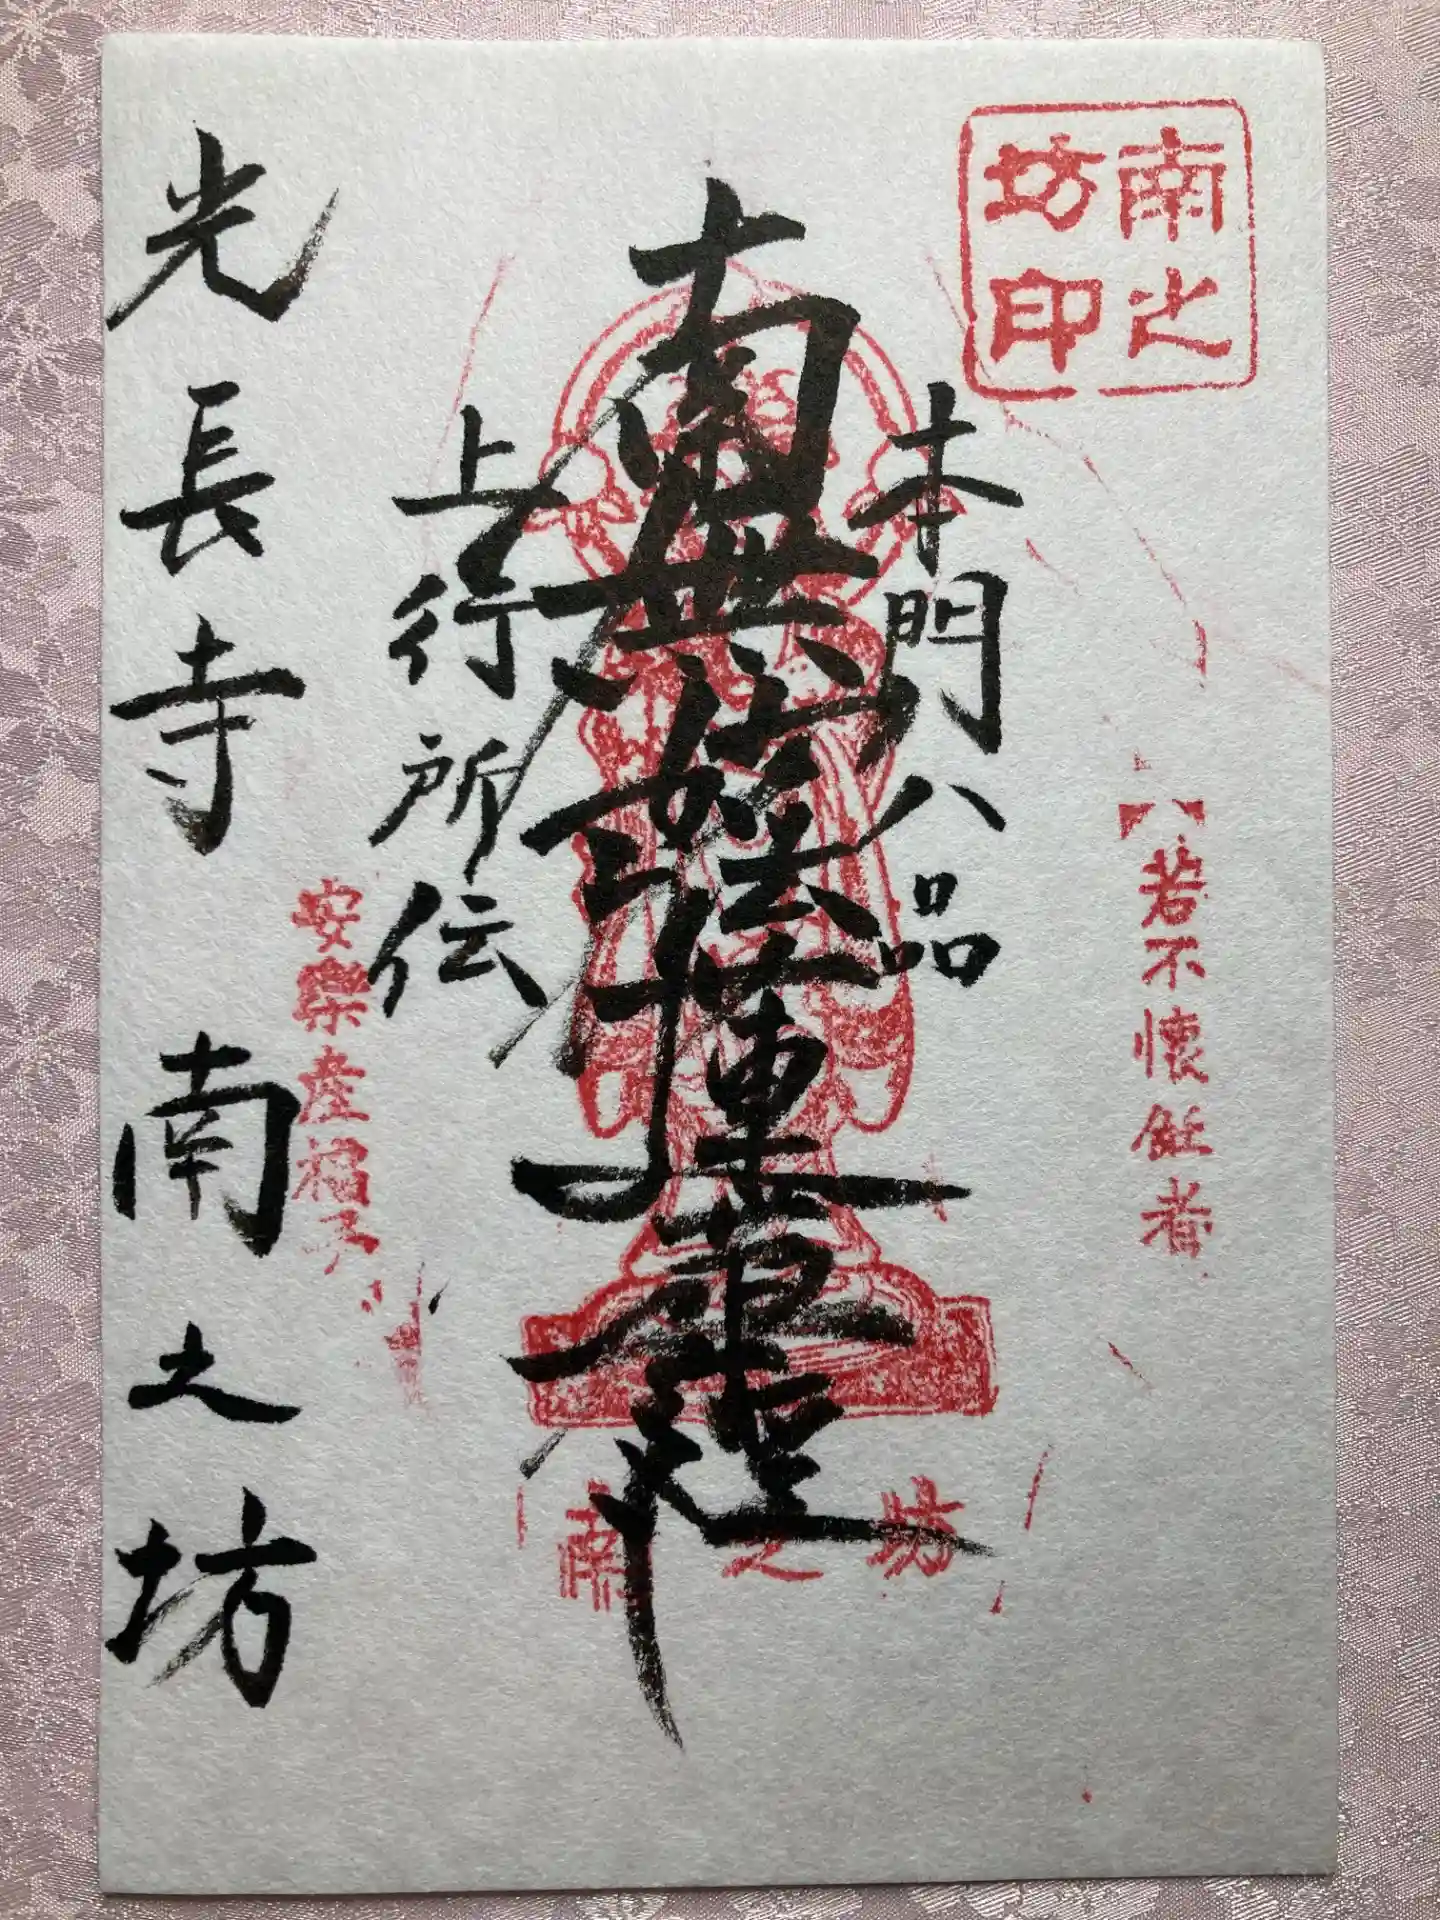 南之
坊印
若不懐妊者
本門八品
南無妙法蓮華経
上行所伝
安楽産福子
光長寺 南之坊
南之坊